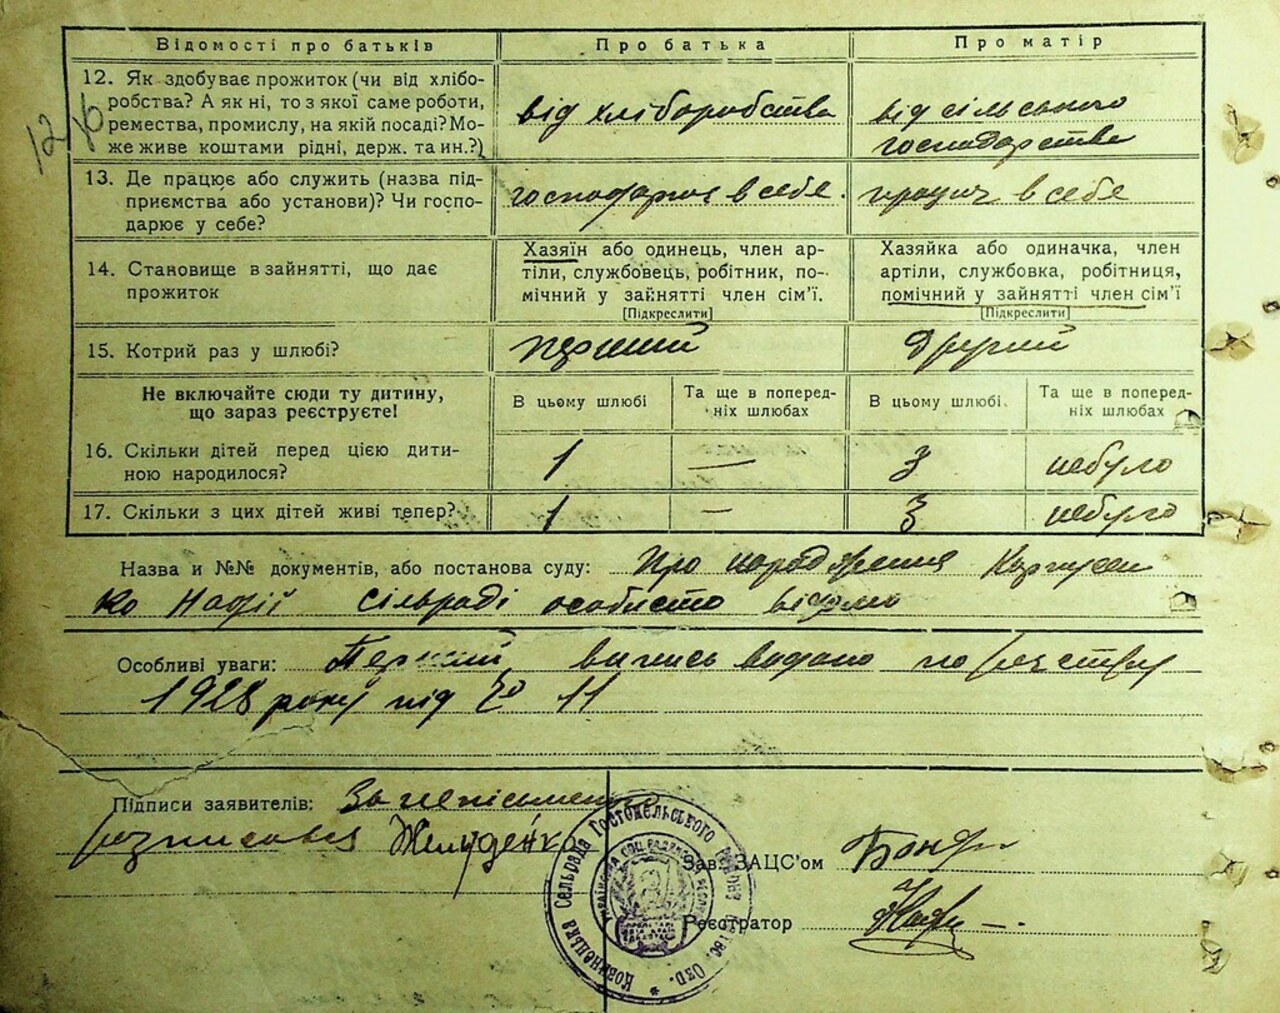 Відомості про батьків
Про батька
Про матір
12. Як здобуває прожиток (чи від хлібо-
робства? А як ні, то з якої саме роботи,
ремества, промислу, на якій посаді? Мо-
же живе коштами рідні, держ. та ин.?)
від хліборобства
від сільського
господарства
12
13. Де працює або служить (назва під-
приємства або установи)? Чи госпо-
дарює у себе?
господарює в себе.
працює в себе
14. Становище в зайнятті, що дає
прожиток
Хазяїн або одинець, член ар-
тіли, службовець, робітник, по-
мічний у зайнятті член сім'ї.
[Підкреслити]
Хазяйка або одиначка, член
артіли, службовка, робітниця,
помічний у зайнятті член сім'ї
[Підкреслити]
15. Котрий раз у шлюбі?
перший
другий
Не включайте сюди ту дитину,
що зараз реєструєте!
В цьому шлюбі
Та ще в поперед-
ніх шлюбах
В цьому шлюбі.
Та ще в поперед-
ніх шлюбах
16. Скільки дітей перед цією дити-
ною народилося?
1
—
3
небуло
17. Скільки з цих дітей живі тепер?
1
—
3
небуло
Назва и №№ документів, або постанова суду: Про народження
ко Надії сільраді особисто відомо
Особливі уваги: Перший випись видано по реєстру
1928 року під № 11
Підписи заявителів: За
розписався
Зав. ЗАЦС'ом
Реєстратор
Сельрада Гостомельського
Окр.